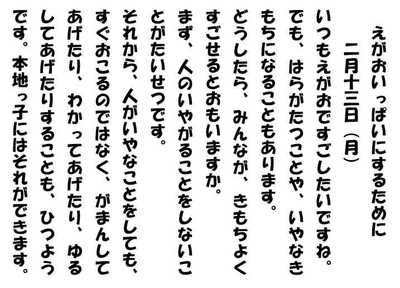 えがおいっぱいにするために
二月十三日（月）
いつもえがおですごしたいですね。
でも、はらがたつことや、いやなき
もちになることもあります。
どうしたら、みんなが、きもちよく
すごせるとおもいますか。
まず、人のいやがることをしないこ
とがたいせつです。
それから、人がいやなことをしても、
すぐおこるのではなく、がまんして
あげたり、わかってあげたり、ゆる
してあげたりすることも、ひつよう
です。本地っ子にはそれができます。